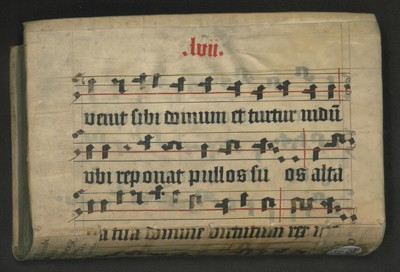 .lvii.
venit sibi domum et turtur nidū
vbi reponat pullos su os alta
a tua domine virtutum rex